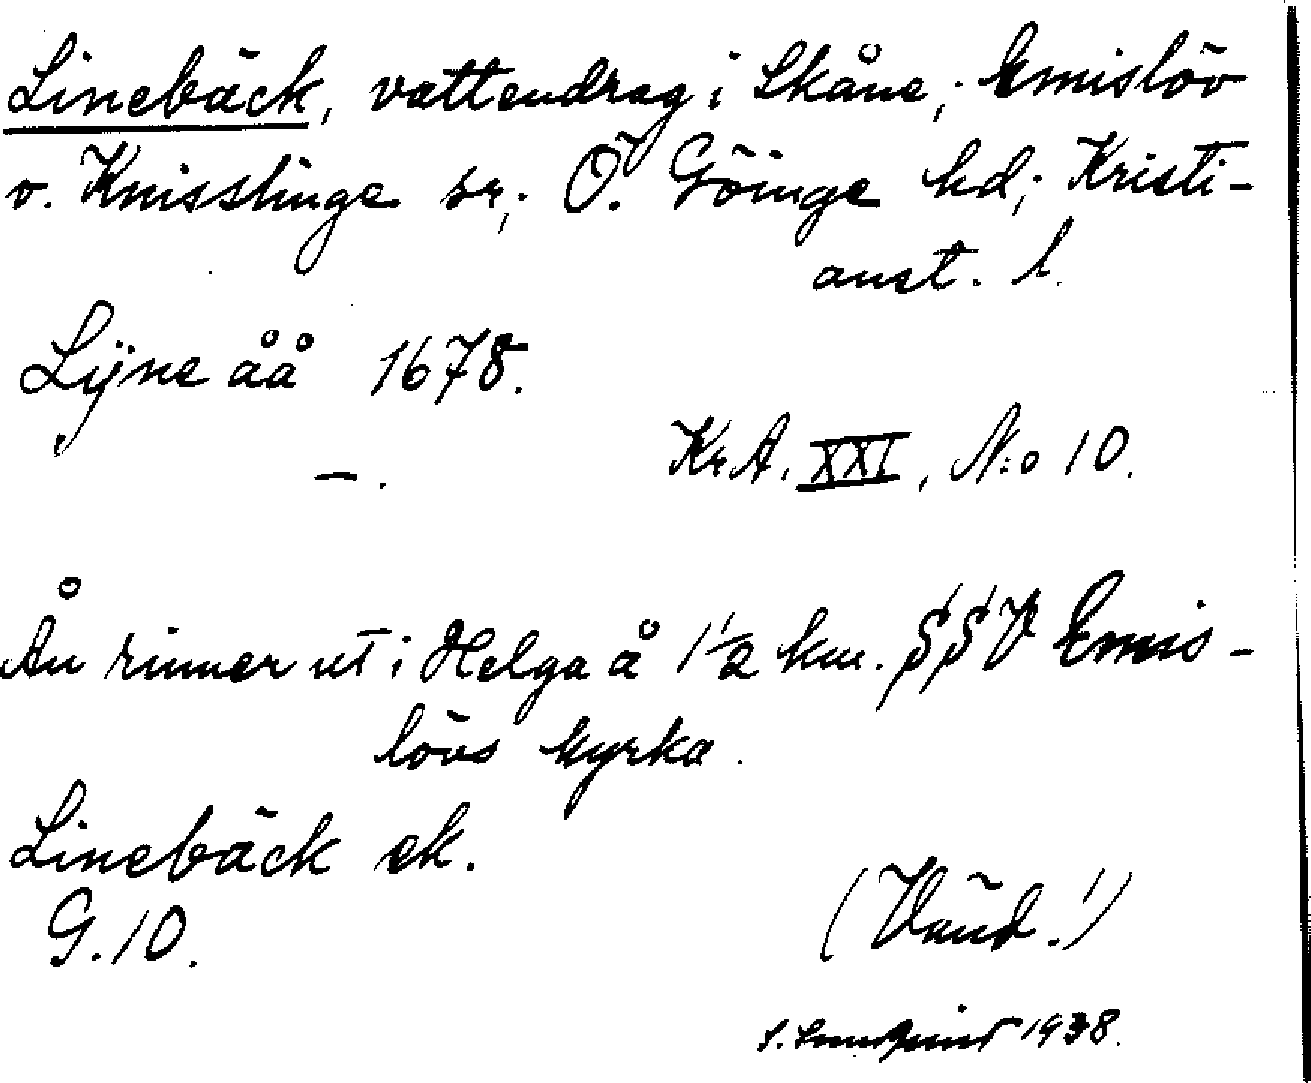 Linebäck, vattendrag i Skåne; Emislöv
o. Knisslinge sr; Ö. Göinge hd; Kristi-
anst. l.
Lÿne åå 1678.
Kr.A. XXI, N:o 10.
—.
Ån rinner ut i Helga å 1½ km. SSV Emis-
lövs kyrka.
Linebäck ek.
G.10.
(Vänd!)
S. 1938.